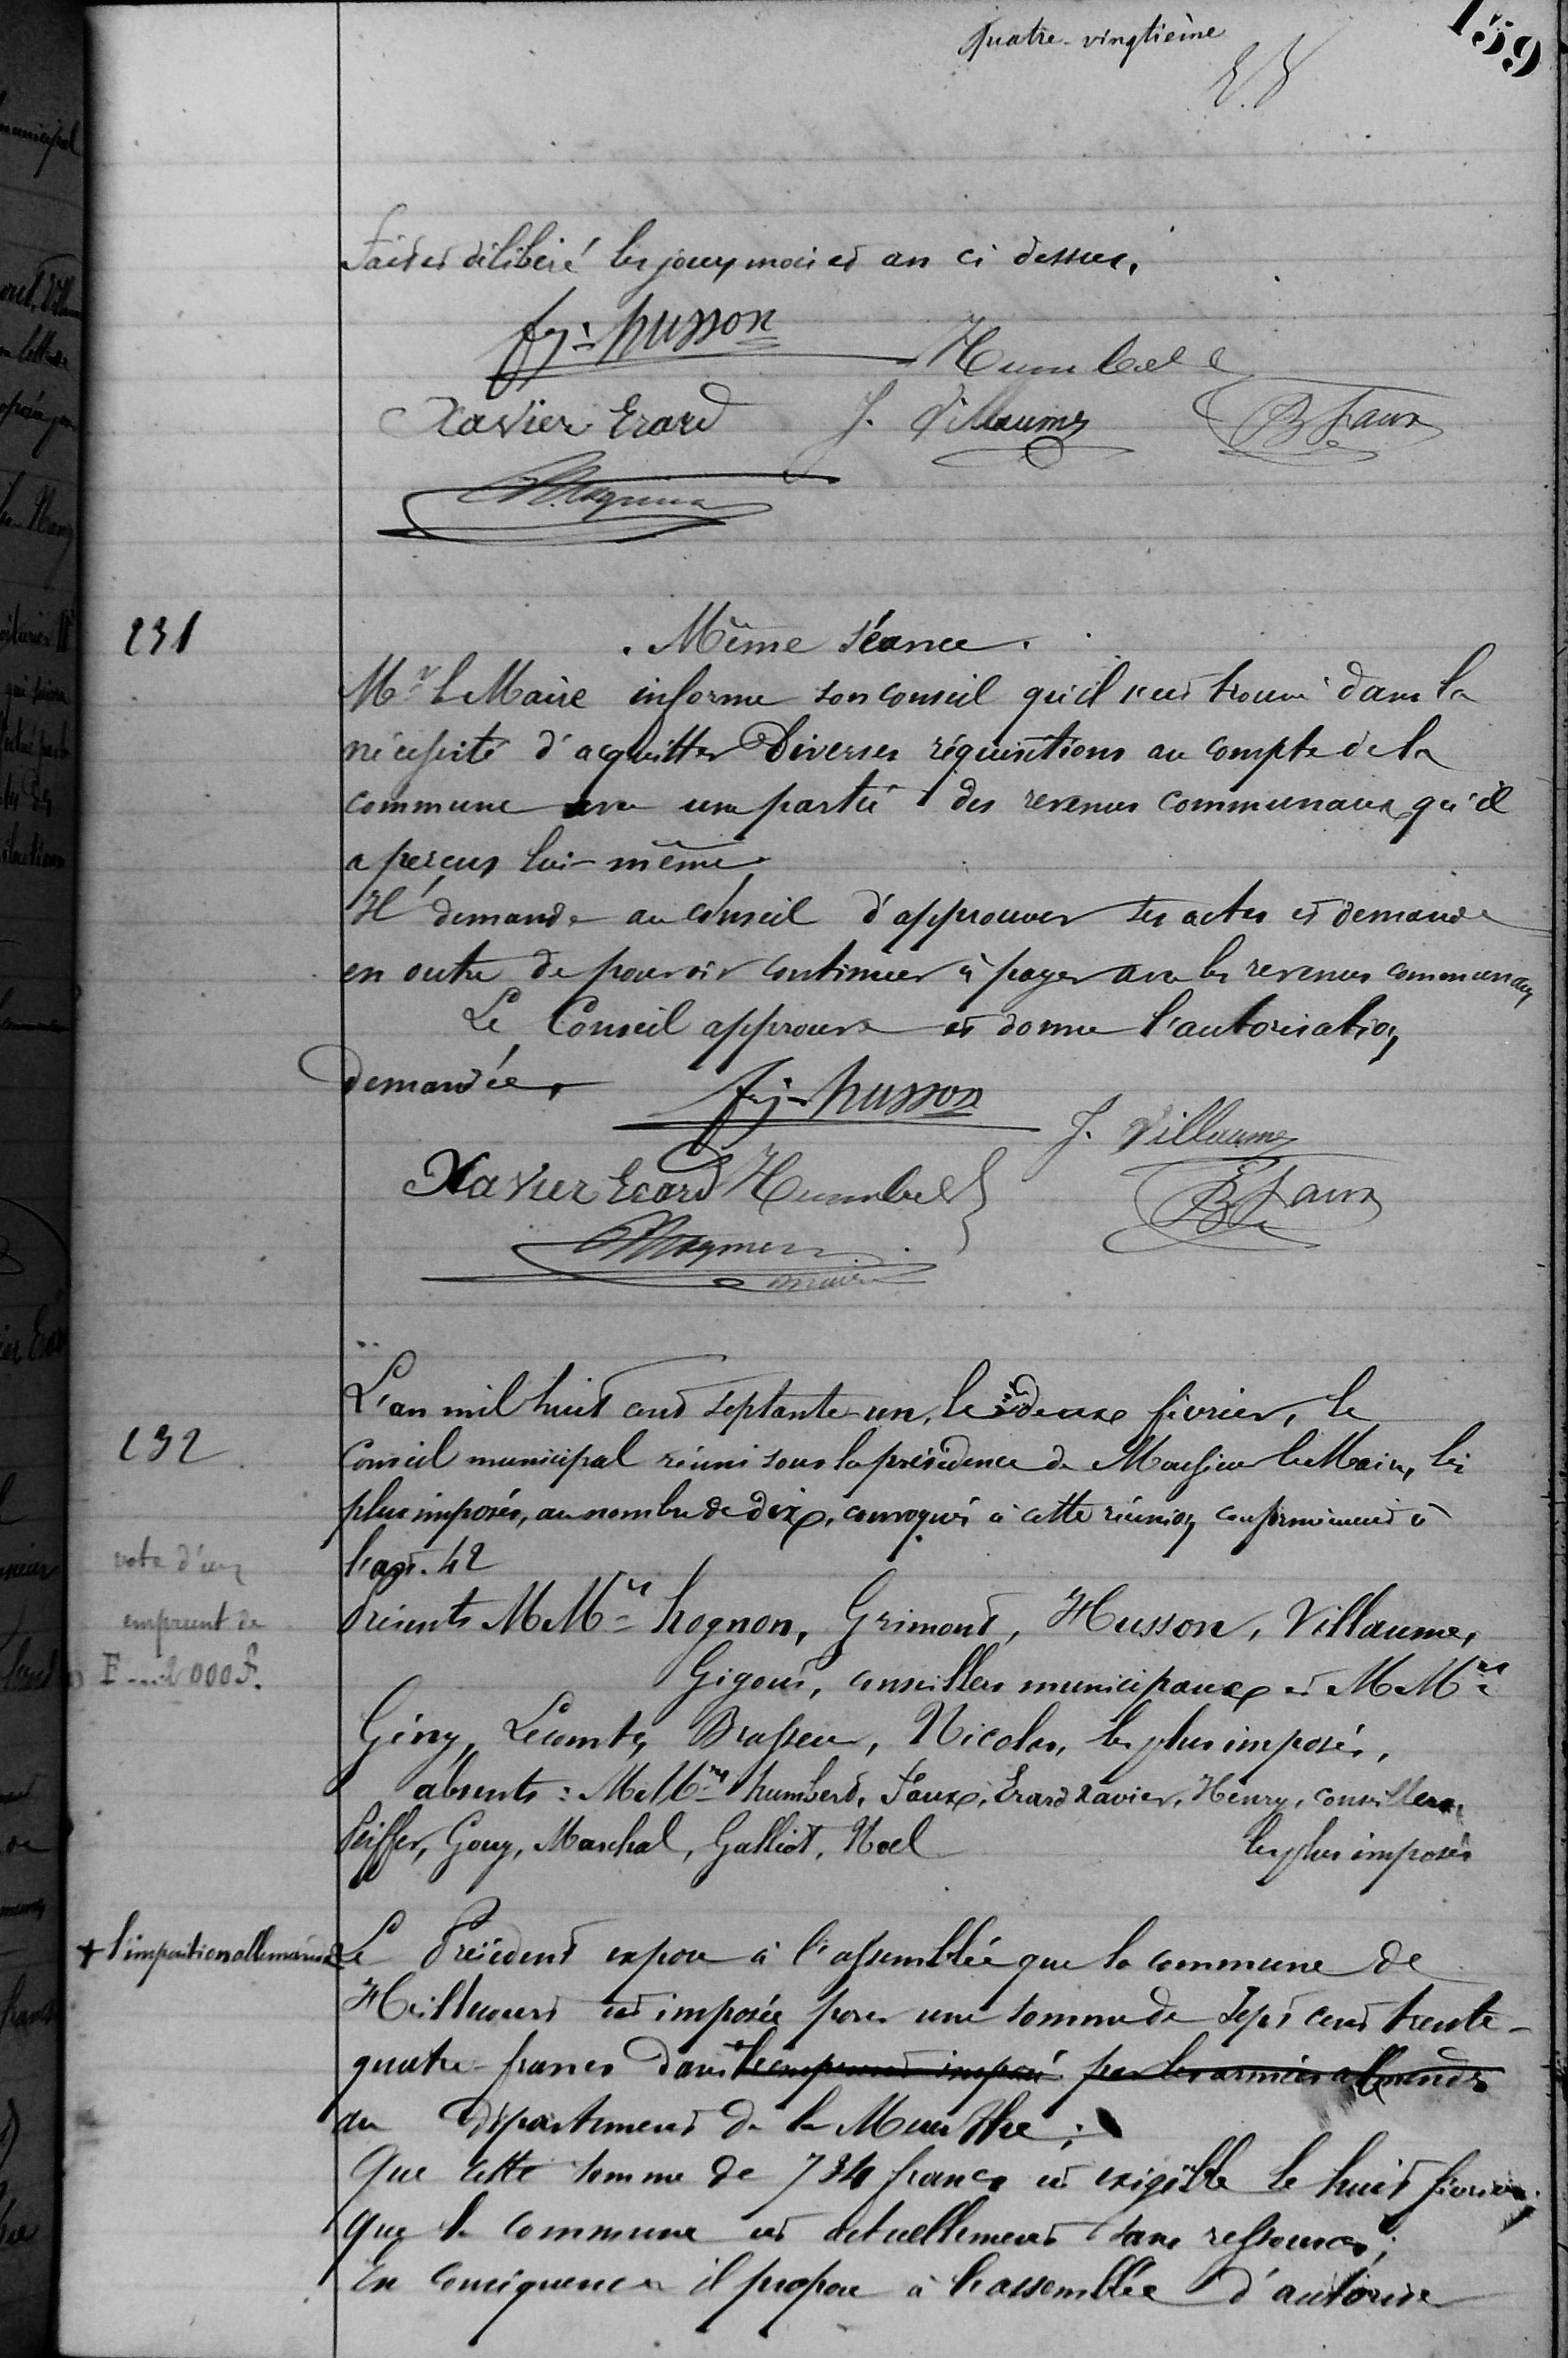 quatre-vingtième
159
Fait et délibéré les jour, mois et an ci dessus.
fs: husson
Humbert
Xavier Erard J. Villaume B Faux
231
Même séance.
Mr le Maire informe son conseil qu'il s'est trouvé dans la
nécessité d'acquitter Diverses réquisitions au compte de la
commune avec une partie des revenus communaux qu'il
a perçus lui-même.
Il demande au Conseil d'approuver ses actes et demande
en outre de pouvoir continuer à payer avec les revenus communaux
Le Conseil approuve et donne l'autorisation
demandée.
fs: husson
J. Villaume
Xavier Erard Humbert
B Faux
maire
232
L'an mil huit cent septante-un, le deux février, le
Conseil municipal réuni sous la présidence de Monsieur le Maire, les
plus imposés, au nombre de dix, convoqués à cette réunion conformément à
l'art. 42
vote d'un
emprunt de
000 f.
Présents MMrs hognon, Grimont, Husson, Villaume,
Gigout, conseillers municipaux et MMrs
Gény, Lecomte, Brasseur, Nicolas, les plus imposés,
absents : MMrs humbert, Faux, Erard Xavier, Henry, conseillers
Peiffer, Gouy, Marchal, Galliot, Noel les plus imposés
+ l'imposition allemande
Le Président expose à l'assemblée que la commune de
Heillecourt est imposée pour une somme de Sept cent trente-
quatre francs dans + l'emprunt imposé par les armées allemandes
au département de la Meurthe ;
Que cette somme de 734 francs est exigible le huit février ;
Que la commune est actuellement sans ressources ;
En conséquence il propose à l'assemblée d'autoriser